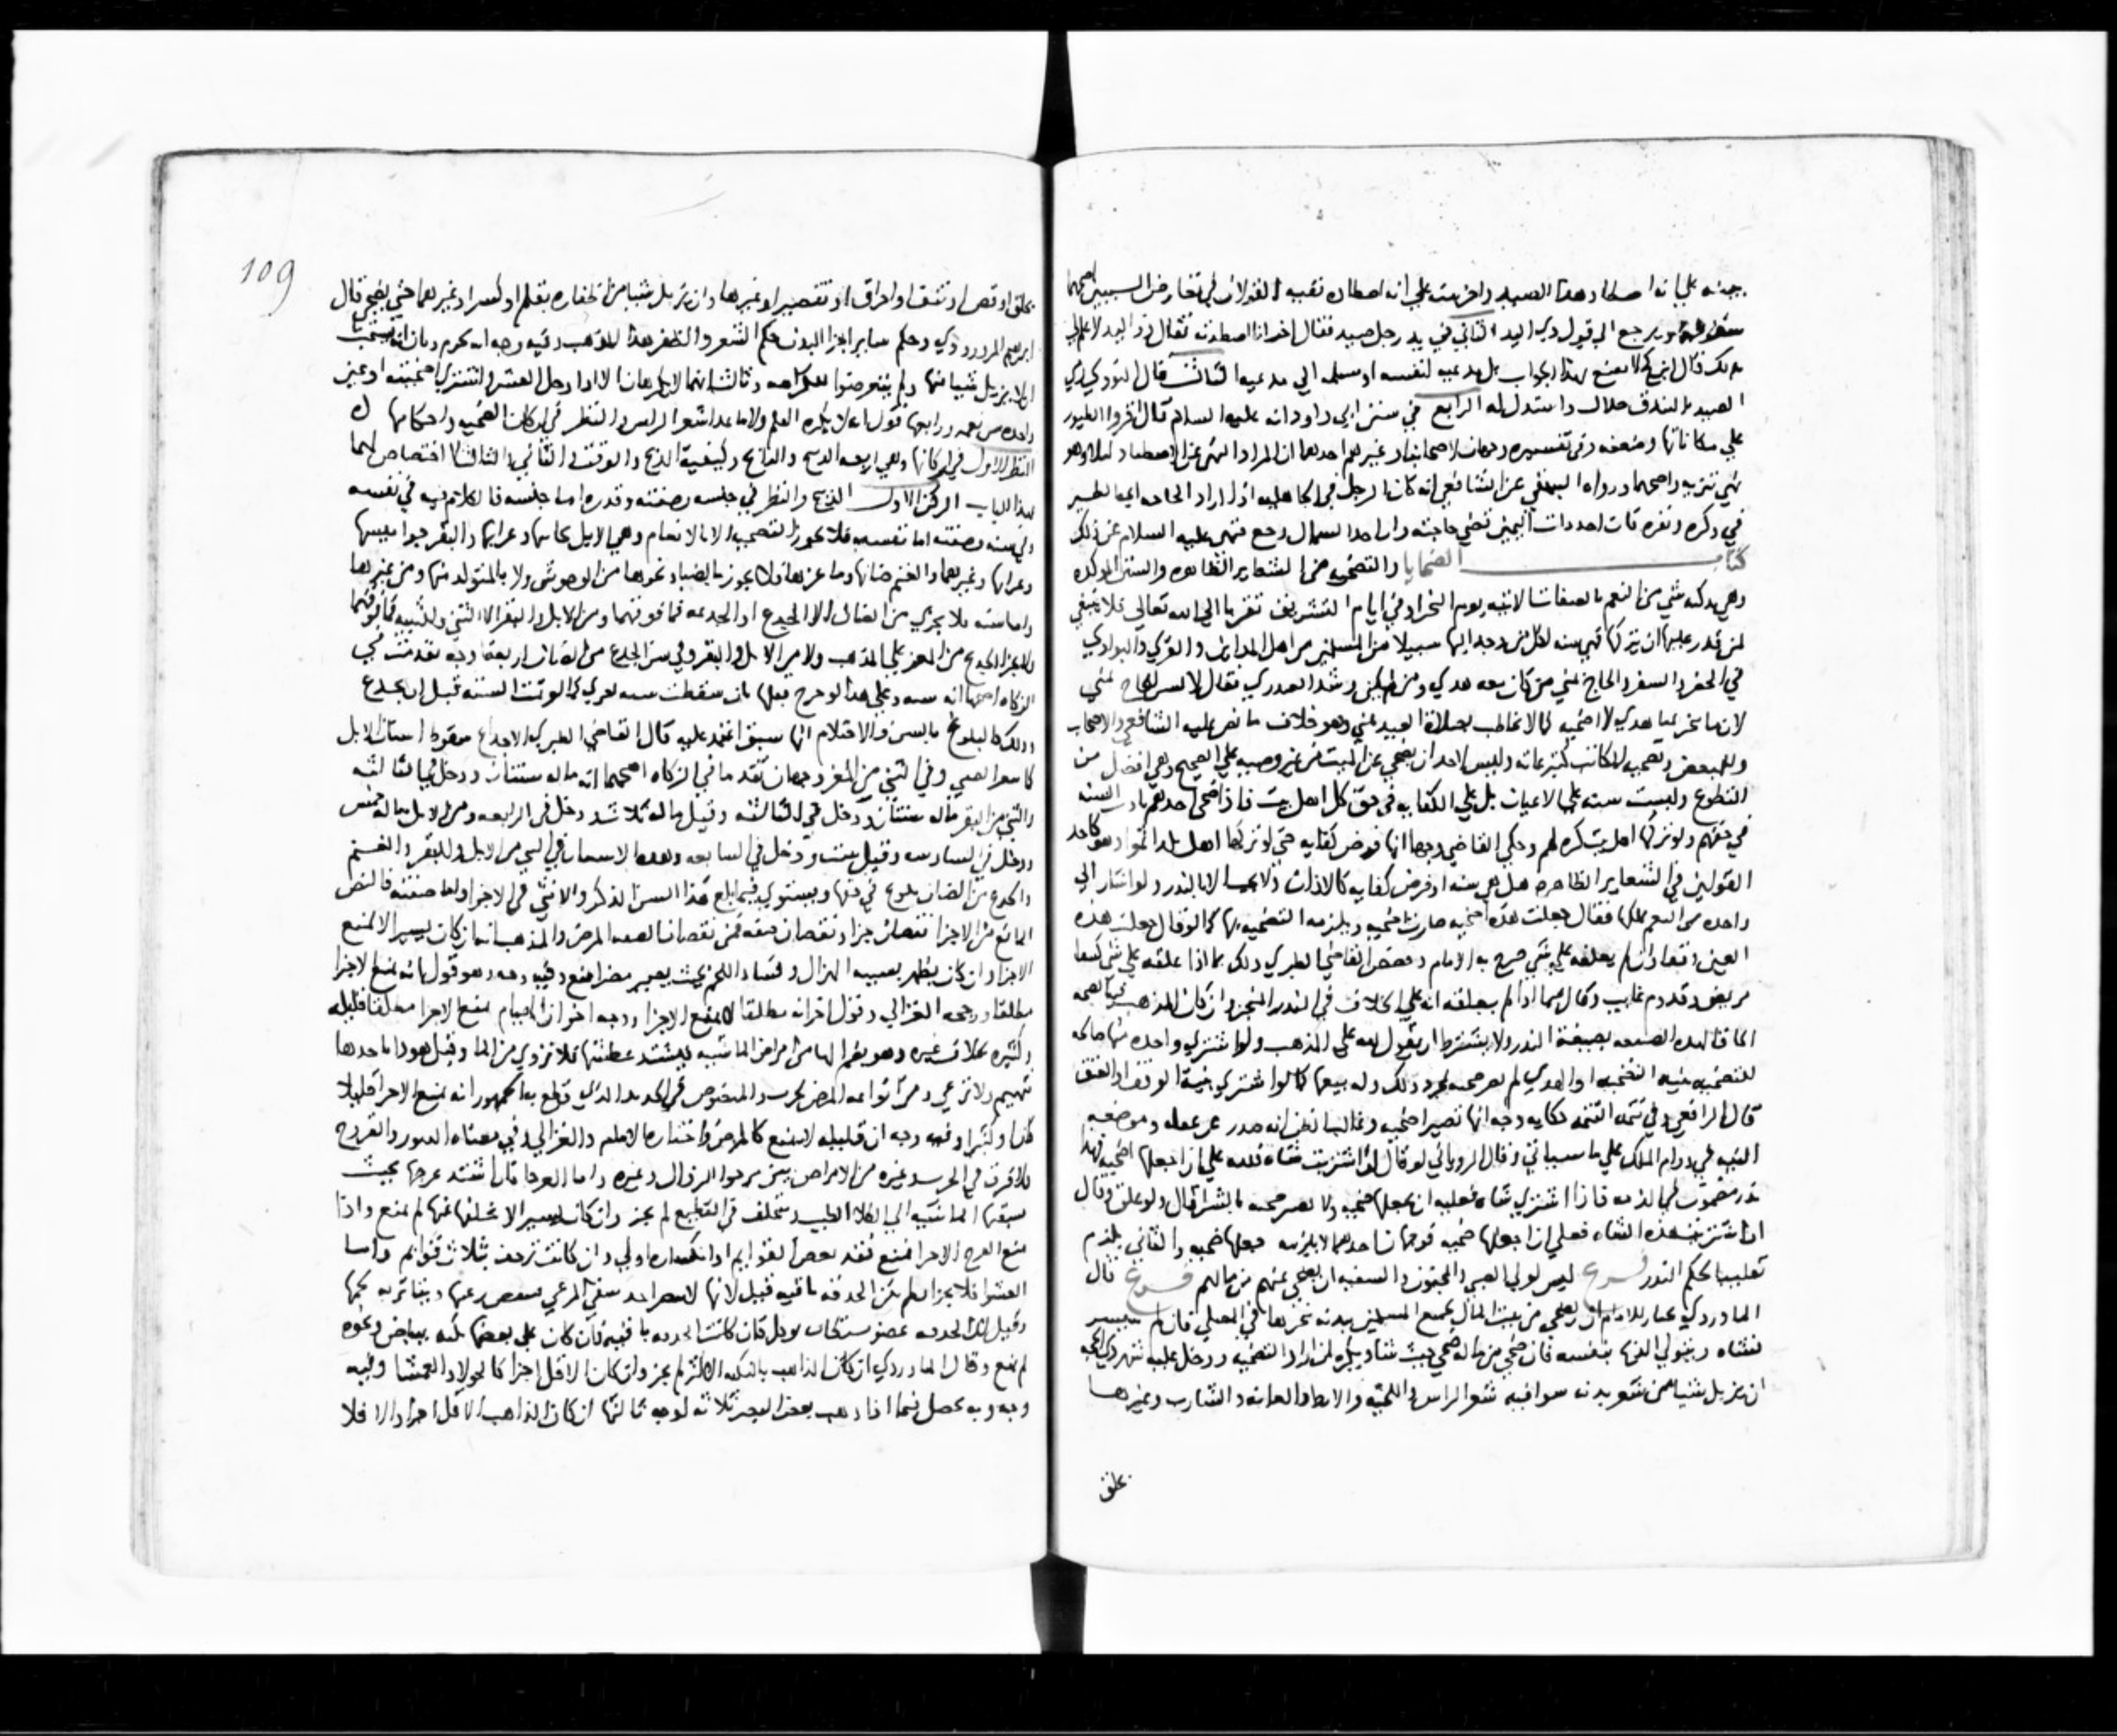 بينه على انه اصطاد هذا الصيد واخر بينه على انه اصطاده ففيه القولان في تعارض البينتين اصحهما
سقوطهما ويرجع الى قول ذي اليد الثاني في يد رجل صيد فقال اخر انا اصطدته فقال ذو اليد لا علم لي
بذلك قال ابن كج لا يقنع بهذا الجواب بل يدعيه لنفسه او يسلمه الى مدعيه الثالث قال النووي رمي
الصيد بالبندق حلال واستدل له الرابع في سنن ابي داود انه عليه السلام قال اقروا الطيور
على مكاناتها وضعفه وفي تفسيره وجهان لاصحابنا وغيرهم احدهما ان المراد النهي عن الاصطياد ليلا وهو
نهي تنزيه واصحهما ورواه البيهقي عن الشافعي انه كان الرجل في الجاهليه اذا اراد الحاجه اتى الطير
في وكره ونفره فان اخذ ذات اليمين قضى حاجته وان اخذ الشمال رجع فنهى عليه السلام عن ذلك
كتاب الضحايا والتضحيه من الشعاير الظاهره والسنن الموكده
وهي تذكيه شي من النعم بالصفات الاتيه يوم النحر او في ايام التشريق تقربا الى الله تعالى فلا ينبغي
لمن قدر عليها ان يتركها فهي سنه لكل من وجد اليها سبيلا من المسلمين من اهل المداين والقرى والبوادي
في الحضر والسفر والحاج بمنى من كان معه هدي ومن لم يكن وشذ العبدري فقال لا يسن لحاج بمنى
لان ما نحر بمنا هدي لا اضحيه كما لا يخاطب بصلاة العيد بمنى وهو خلاف ما نص عليه الشافعي والاصحاب
وللبعض وتضحيه المكاتب كتبرعاته وليس لاحد ان يضحي عن الميت من غير وصيه على الصحيح وهي افضل من
التطوع وليست سنه على الاعيان بل على الكفايه في حق كل اهل بيت فاذا ضحى احدهم تادت السنه
في حقهم ولو تركها اهل بيت كره لهم وحكى القاضي وجها انها فرض كفايه حتى لو تركها اهل بلد اثموا وهو كاحد
القولين في الشعاير الظاهره هل هي سنه او فرض كفايه كالاذان ولا تجب الا بالنذر ولو اشار الى
واحده من النعم يملكها فقال جعلت هذه اضحيه صارت ضحيه ويلزمه التضحيه بها كما لو قال جعلت هذه
العين وقفا وان لم يعلقه على شي صرح به الامام وخصص القاضي الطبري ذلك بما اذا علقه على شي كشفا
مريض وقدوم غايب وقال فيما اذا لم يعلقه انه على الخلاف في النذر المنجز وان كان المذهب فيه الصحه
الحاقا لهذه الصيغه بصيغة النذر ولا يشترط ان يقول لله على المذهب ولو اشترى واحده منها صالحه
للتضحيه بنيه التضحيه او الهدي لم تصر ضحيه بمجرد ذلك وله بيعها كما لو اشترى بنية الوقف او العتق
قال الرافعي وفي تتمه التتمه حكايه وجه انها تصير اضحيه وغالبا نظن انه صدر عن غفله وموضعه
النيه في دوام الملك على ما سياتي وقال الروياني لو قال ان اشتريت شاه فلله علي ان اجعلها اضحيه فهذا
نذر مضمون في الذمه فاذا اشترى شاه فعليه ان يجعلها ضحيه ولا تصير ضحيه بالشرا قال ولو علق وقال
ان اشتريت هذه الشاه فعلي ان اجعلها ضحيه فوجهان احدهما لا يلزمه جعلها ضحيه والثاني يلزم
تغليبا لحكم النذر فرع ليس لولي الصبي والمجنون والسفيه ان يضحي عنهم من مالهم فرع قال
الماوردي يختار للامام ان يضحي من بيت المال بجميع المسلمين ببدنه ينحرها في المصلى فان لم يتيسر
فشاه ويتولى النحر بنفسه فان ضحى من ماله ضحى حيث شاء ويكره لمن اراد التضحيه ودخل عليه شهر ذي الحجه
ان يزيل شيا من شعر بدنه سوا فيه شعر الراس واللحيه والابط والعانه والشارب وغيرها
بحلق
109
بحلق او قص او نتف او احراق او تقصير او غيرها وان يزيل شيا من اظفاره بقلم او كسر او غيرهما حتى يضحي قال
ابراهيم المروروذي وحكم ساير اجزا البدن حكم الشعر والظفر هذا المذهب وفيه وجه انه يحرم وثان انه يستحب
ان لا يزيل شيا منها ولم يتعرضوا للكراهه وثالث انهما لا يكرهان الا اذا دخل العشر واشترى اضحيته او عين
واحده من نعمه ورابعها قول انه لا يكره القلم ولا ما عدا شعر الراس والنظر في اركان الضحيه واحكامها
النظر الاول في اركانها وهي اربعه الذبيح والذابح وكيفية الذبح والوقت الثاني والثالث لا اختصاص لهما
بهذا الباب الركن الاول الذبيح والنظر في جنسه وصفته وقدره اما جنسه فالكلام فيه في نفسه
وفي سنه وصفته اما نفسه فلا يجوز التضحيه الا بالانعام وهي الابل بخاتيها وعرابها والبقر جواميسها
وعرابها وغيرهما والغنم ضانها وماعزها ولا يجوز بالضبا ونحوها من الوحوش ولا بالمتولد منها ومن غيرها
واما سنه فلا يجزي من الضان الا الجذع او الجذعه فما فوقهما ومن الابل والبقر الا الثني والثنيه فما فوقهما
ولا يجزي الجذع من المعز على المذهب ولا من الابل والبقر وفي سن الجذع من الضان اربعة اوجه تقدمت في
الزكاه اصحها انه سنه وعلى هذا لو خرج بعلها بان سقطت سنه يجزي كما لو تمت السنه قبل ان يجذع
وذلك كالبلوغ بالسن والاحتلام انها سبق اعتمد عليه قال القاضي الطبري الاجذاع سقوط اسنان الابل
كاثغار الصبي وفي الثني من المعز وجهان تقدما في الزكاه اصحهما انه ماله سنتان ودخل في الثالثه
والثني من البقر ماله سنتان ودخل في الثالثه وقيل ماله ثلاث ودخل في الرابعه ومن الابل ماله خمس
ودخل في السادسه وقيل ست ودخل في السابعه وهذه الاسنان في الثني من الابل والبقر والغنم
والجذع من الضان بلوغ في حقها ويستوي فيما بلغ هذا السن الذكر والانثى في الاجزا واما صفته فالنقص
المانع من الاجزا نقصان جزا ونقصان صفه فمن نقصان الصفه المرض والمذهب انه ان كان يسيرا لا يمنع
الاجزا وان كان يظهر بسببه الهزال وفساد اللحم بحيث يصير مضرا منع وفيه وجه وهو قول بانه يمنع الاجزا
مطلقا ورجحه الغزالي وقول اخر انه مطلقا لا يمنع الاجزا ووجه اخر ان الهيام يمنع الاجزا مطلقا قليله
وكثيره بخلاف غيره وهو بضم الها من امراض الماشيه يشتد عطشها فلا تروى من الما وقيل هو داء ياخذها
فتهيم ولا ترعى ومن انواعه المرض الجرب والمنصوص في الجديد الذي قطع به الجمهور انه يمنع الاجزا قليلا
كان او كثيرا وفيه وجه ان قليله لا يمنع كالمرض واختاره الامام والغزالي وفي معناه البثور والقروح
فلا فرق في الجرب وغيره من الامراض بين مرجوا الزوال وغيره واما العرجا فان اشتد عرجها بحيث
تسبقها الماشيه الى الكلا الطيب وتتخلف في القطيع لم يجز وان كان يسيرا لا تخلف عنها لم يمنع واذا
منع العرج الاجزا فمنع فقد بعض القوايم او انكساره اولى وان كانت تزحف بثلاث قوايم واما
العشوا فلا يجزا ان لم تكن الحدقه باقيه قيل لانها لا تبصر احد شقي المرعى فينقص رعيها ويتاثر به لحمها
وقيل لان الحدقه عضو مستطاب يوكل فان كانت الحدقه باقيه فان كان على بعضها نكته بياض ونحوه
لم يمنع وقال الماوردي ان كان الذاهب بالنكته الاكثر لم يجز وان كان الاقل اجزا كالحولا والعمشا وفيه
وجه وبه يحصل فيما اذا ذهب بعض البصر ثلاثه اوجه ثالثها ان كان الذاهب الاقل اجزا والا فلا